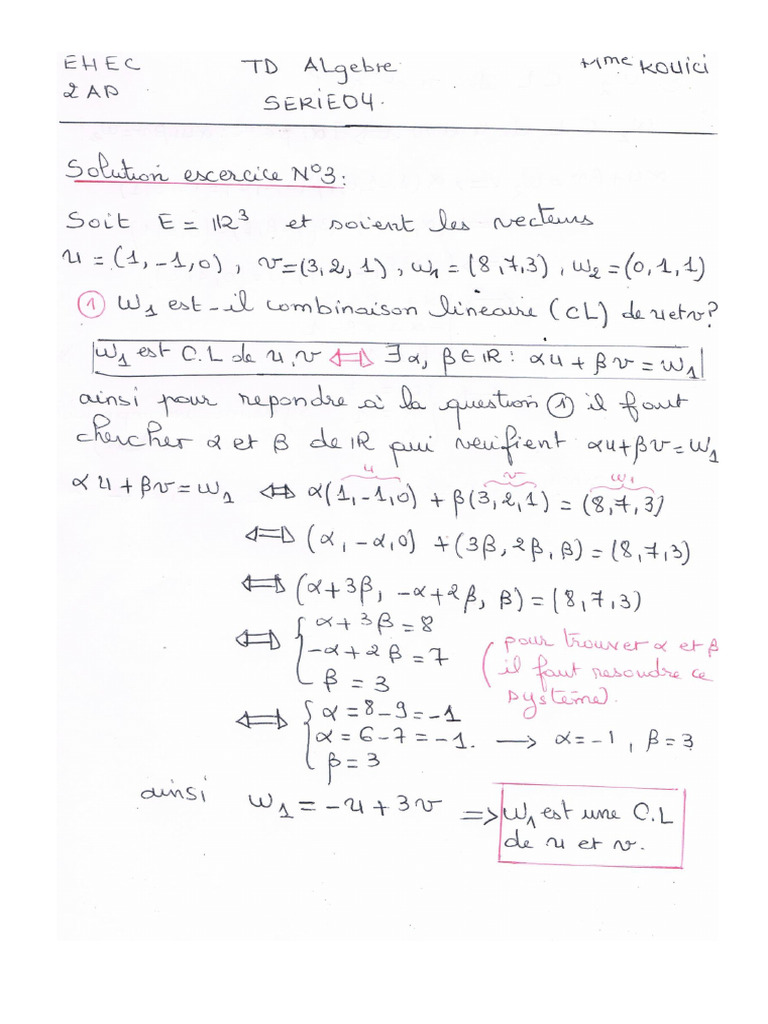 EHEC TD ALgebre Mme KOUICI
2AP SERIE04.
Solution escercice N°3:
Soit E = IR³ et soient les vecteurs
u = (1,-1,0), v=(3,2,1), w₁ = (8,7,3), w₂ = (0,1,1)
① W₁ est-il combinaison lineaire (CL) de u et v?
W₁ est C.L de u,v ⟺ ∃ α, β ∈ IR : αu + βv = W₁
ainsi pour repondre à la question ① il faut
chercher α et β de IR qui verifient αu+βv=W₁
u v w₁
αu + βv = w₁ ⟺ α(1,-1,0) + β(3,2,1) = (8,7,3)
⟺ (α, -α,0) + (3β, 2β, β) = (8,7,3)
⟺ (α+3β, -α+2β, β) = (8,7,3)
⟺ { α + 3β = 8
-α + 2β = 7
β = 3
(pour trouver α et β
il faut resoudre ce
système).
⟺ { α = 8-9 = -1
α = 6-7 = -1. → α=-1, β=3
β = 3
ainsi W₁ = -u + 3v ⇒ W₁ est une C.L
de u et v.